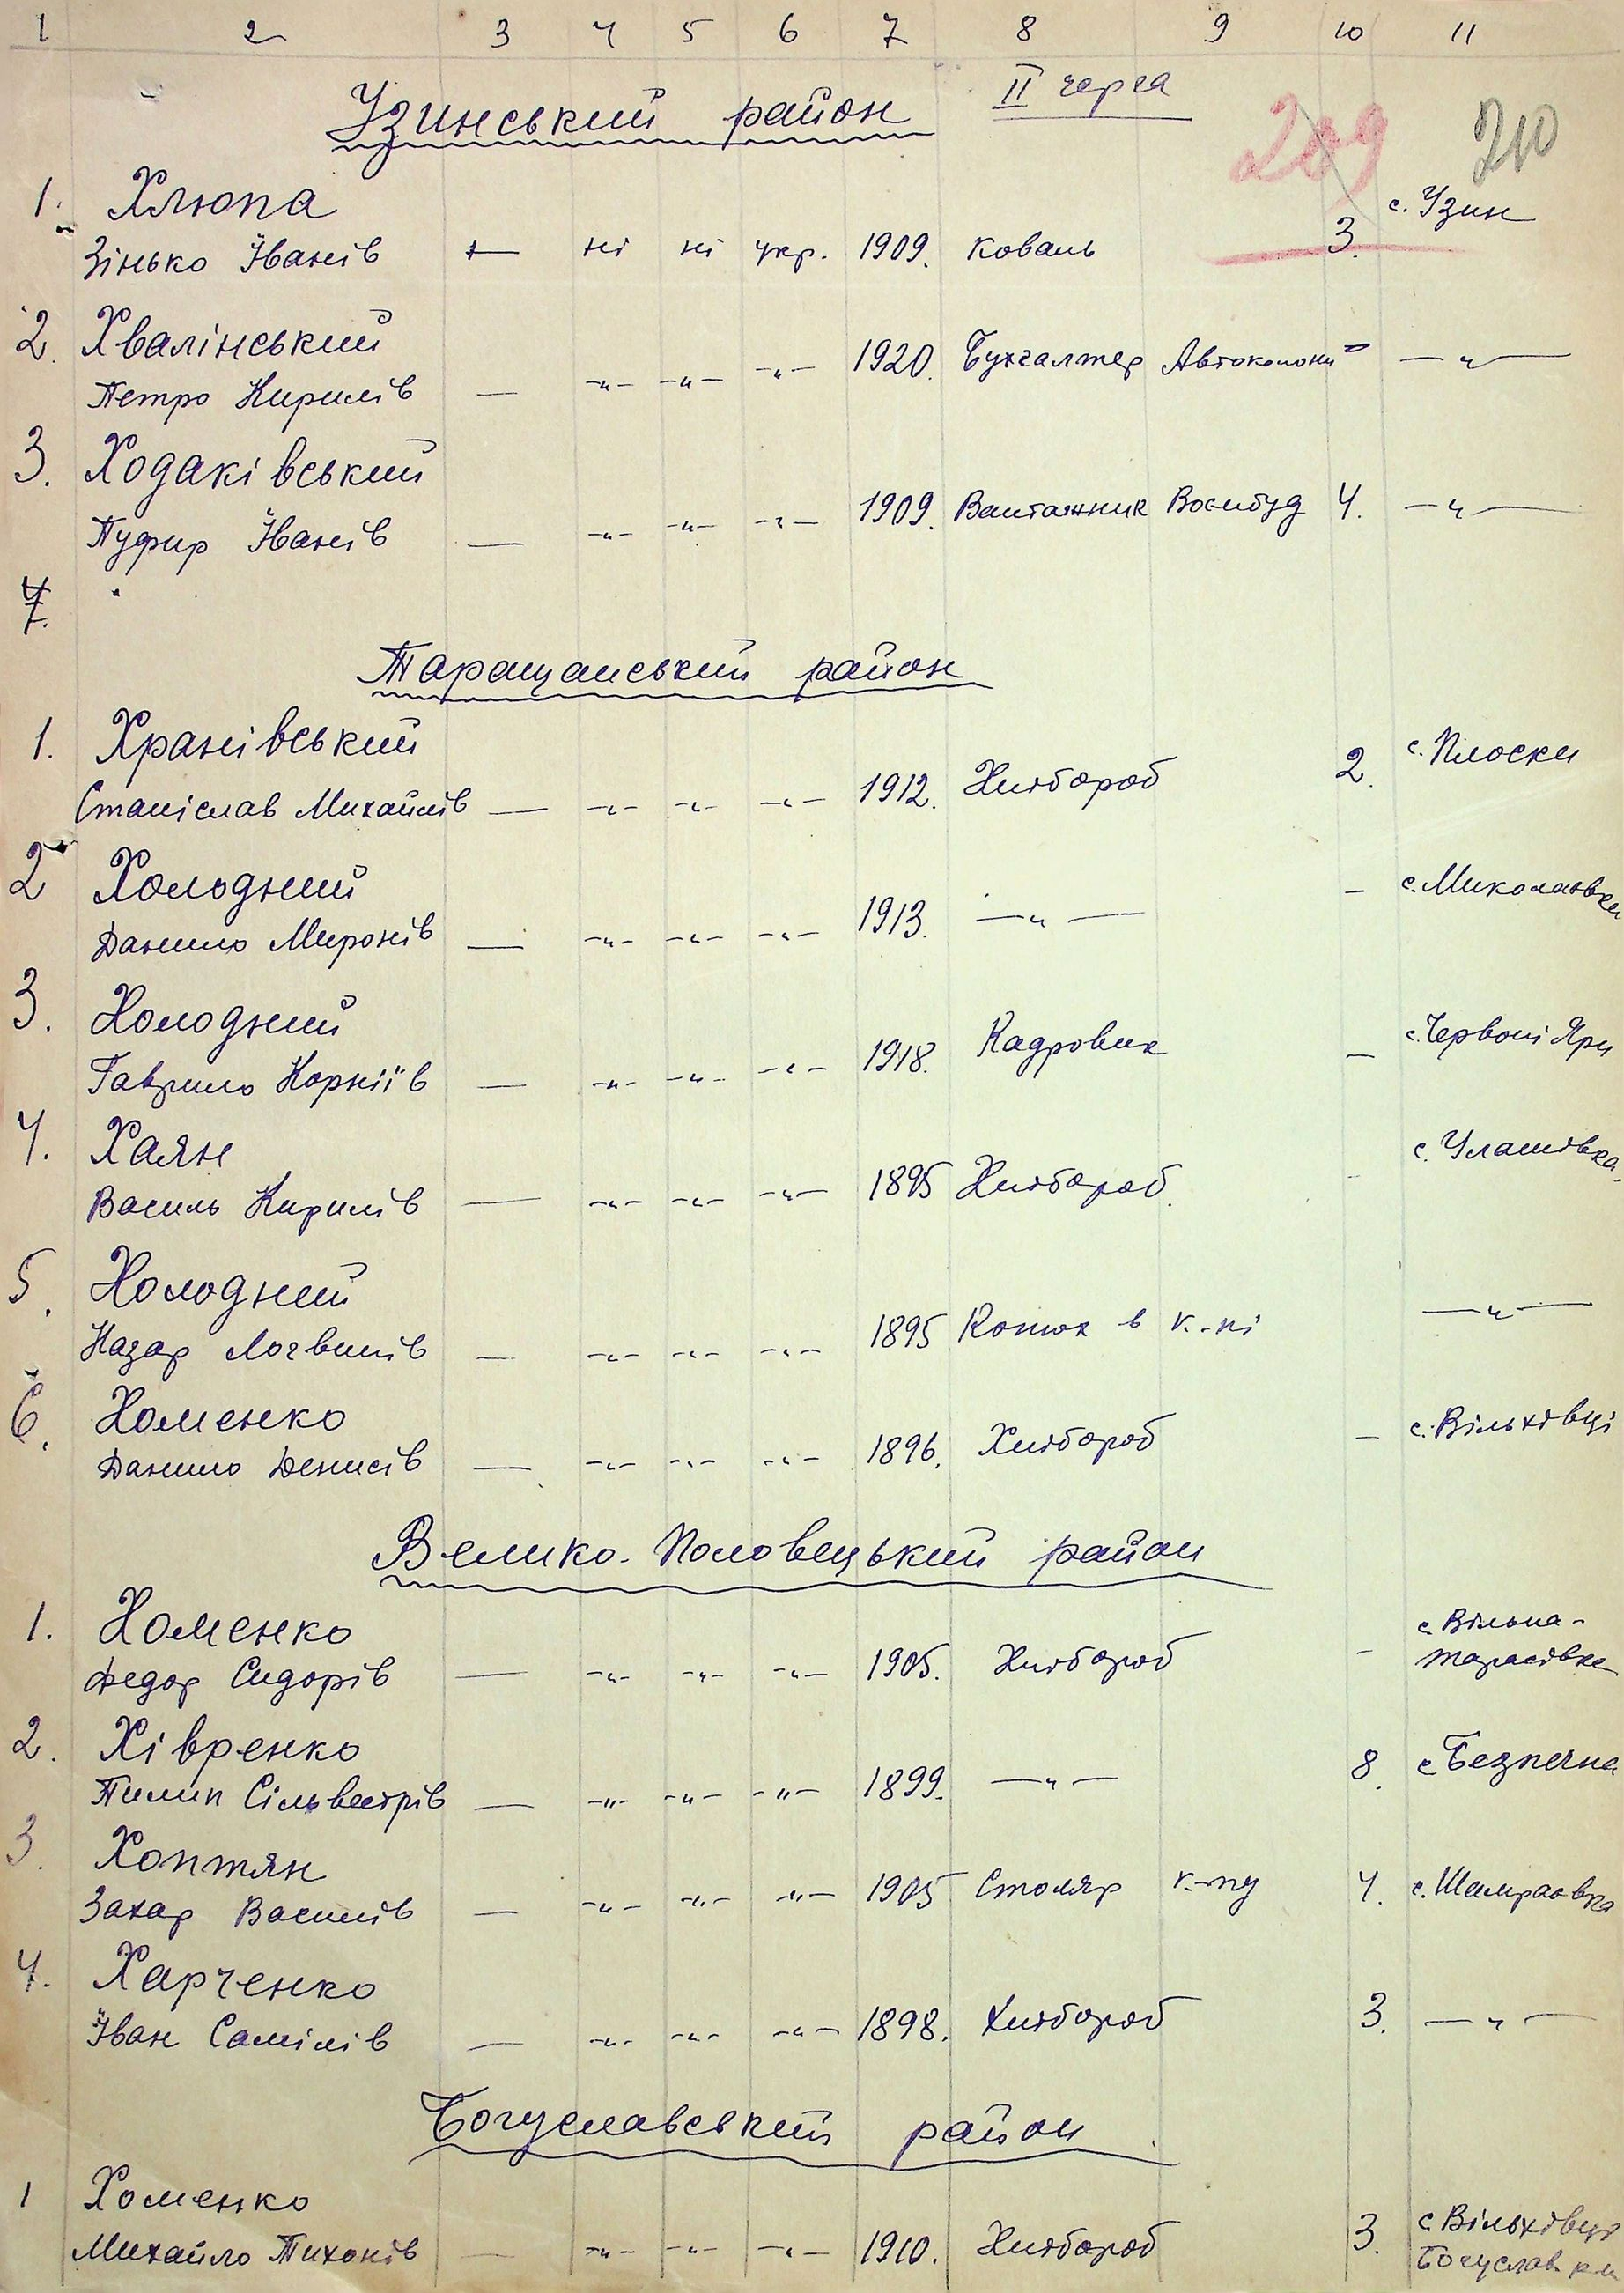 1 2 3 4 5 6 7 8 9 10 11
Узинський район II черга
209 210
1. Хлюпа с. Узин
Зінько Іванів — ні ні укр. 1909. коваль 3.
2. Хвалінський
Петро Кирилів — -„- -„- -„- 1920. Бухгалтер Автоколони —„—
3. Ходаківський
Пуфир Іванів — -„- -„- -„- 1909. Вантажник Воєнбуд 4. —„—
Таращанський район
1. Хранівський с. Плоски
Станіслав Михайлів — -„- -„- -„- 1912. Хлібороб 2.
2 Холодний с. Миколаївка
Данило Миронів — -„- -„- -„- 1913. —„— -
3. Холодний с. Червоні Яри
Гаврило Корніїв — -„- -„- -„- 1918. Кадровик —
4. Хаян с. Улашівка
Василь Кирилів — -„- -„- -„- 1895 Хлібороб. -
5. Холодний
Назар Логвинів — -„- -„- -„- 1895 Конюх в к.-пі —„—
6. Хоменко с. Вільхівці
Данило Денисів — -„- -„- -„- 1896. Хлібороб -
Велико-Половецький район
1. Хоменко с. Вільна-
Федор Сидорів — -„- -„- -„- 1905. Хлібороб - Тарасівка
2. Хівренко
Пилип Сільвестрів — -„- -„- -„- 1899. —„— 8. с. Безпечна
3. Хоптян
Захар Василів — -„- -„- -„- 1905 Столяр к-пу 4. с. Шамраовка
4. Харченко
Іван Самілів — -„- -„- -„- 1898. Хлібороб 3. —„—
Богуславський район
1 Хоменко
Михайло Тихонів — -„- -„- -„- 1910. Хлібороб 3. с. Вільхівці
Богуслав. р-н